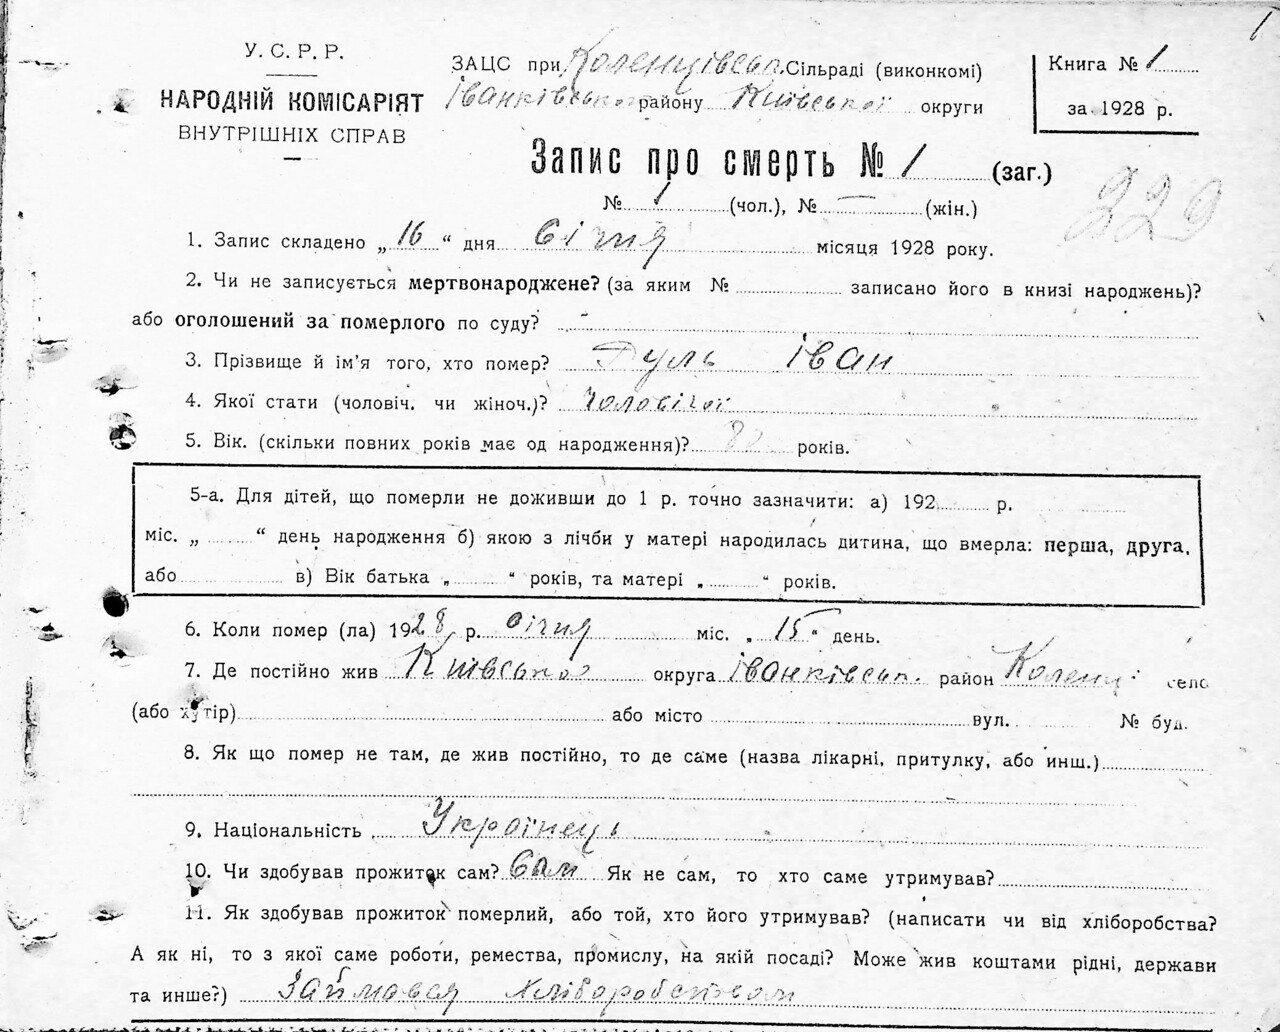 1
У. С. Р. Р.
НАРОДНІЙ КОМІСАРІЯТ
ВНУТРІШНІХ СПРАВ
ЗАЦС при Коленцівськ. Сільраді (виконкомі)
Іванківського району Київської округи
Книга № 1
за 1928 р.
Запис про смерть № 1 (заг.)
№ 1 (чол.), № — (жін.)
229
1. Запис складено „ 16 “ дня Січня місяця 1928 року.
2. Чи не записується мертвонароджене? (за яким № записано його в книзі народжень)?
або оголошений за померлого по суду?
3. Прізвище й ім'я того, хто помер? Гуль Іван
4. Якої стати (чоловіч. чи жіноч.)? чоловічої
5. Вік. (скільки повних років має од народження)? років.
5-а. Для дітей, що померли не доживши до 1 р. точно зазначити: а) 192 р.
міс. „ “ день народження б) якою з лічби у матері народилась дитина, що вмерла: перша, друга,
або в) Вік батька „ “ років, та матері „ “ років.
6. Коли помер (ла) 1928 р. січня міс. „ 15 “ день.
7. Де постійно жив Київської округа Іванківськ. район Коленці село
(або хутір) або місто вул. № буд.
8. Як що помер не там, де жив постійно, то де саме (назва лікарні, притулку, або инш.)
9. Національність Українець
10. Чи здобував прожиток сам? Сам Як не сам, то хто саме утримував?
11. Як здобував прожиток померлий, або той, хто його утримував? (написати чи від хліборобства?
А як ні, то з якої саме роботи, ремества, промислу, на якій посаді? Може жив коштами рідні, держави
та инше?) Займався хліборобством